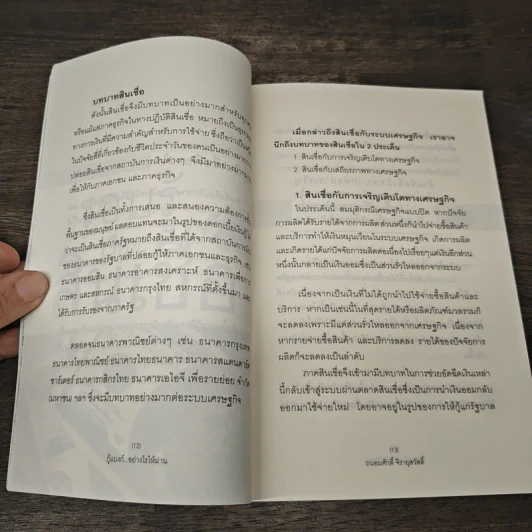 บทบาทสินเชื่อ
ดังนั้นสินเชื่อจึงมีบทบาทเป็นอย่างมากสำหรับ
หรือแม้แต่ภาคธุรกิจในทางปฏิบัติสินเชื่อ หมายถึงเป็น
ทางการเงินที่มีความสำคัญสำหรับการใช้จ่าย ซึ่งถือว่าเป็น
ในปัจจัยสี่ที่เกี่ยวข้องกับชีวิตประจำวันของคนเป็นอย่างมาก
ปล่อยสินเชื่อจากสถาบันการเงินต่างๆ จึงมีมาอย่าง
เพื่อให้กับภาคเอกชน และภาคธุรกิจ
ซึ่งสินเชื่อเป็นทั้งการเสนอ และสนองความต้องการ
พื้นฐานของมนุษย์ ผลตอบแทนจะมาในรูปของดอกเบี้ย
ว่าจะเป็นสินเชื่อภาครัฐหมายถึงสินเชื่อที่ได้จากสถาบันการเงิน
ของธนาคารของรัฐบาลที่ปล่อยกู้ให้ภาคเอกชนและธุรกิจ
ธนาคารออมสิน ธนาคารอาคารสงเคราะห์ ธนาคารเพื่อการ
เกษตร และสหกรณ์ ธนาคารกรุงไทย สหกรณ์ที่ตั้งขึ้นมา และ
ได้รับการรองจากภาครัฐ
ตลอดจนธนาคารพาณิชย์ต่างๆ เช่น ธนาคารกรุงเทพ
ธนาคารไทยพาณิชย์ ธนาคารไทยธนาคาร ธนาคารสแตนดาร์ด
ชาร์เตอร์ ธนาคารกสิกรไทย ธนาคารเอไอจี เพื่อรายย่อย จำกัด
(มหาชน) ฯลฯ ซึ่งจะมีบทบาทอย่างมากต่อระบบเศรษฐกิจ
(12)
กู้แบงก์...อย่างไรให้ผ่าน
เมื่อกล่าวถึงสินเชื่อกับระบบเศรษฐกิจ เราอาจ
นึกถึงบทบาทของสินเชื่อใน 2 ประเด็น
1. สินเชื่อกับการเจริญเติบโตทางเศรษฐกิจ
2. สินเชื่อกับเสถียรภาพทางเศรษฐกิจ
1. สินเชื่อกับการเจริญเติบโตทางเศรษฐกิจ
ในประเด็นนี้ สมมุติกรณีเศรษฐกิจแบบปิด หากปัจจัย
การผลิตได้รับรายได้จากการผลิตส่วนหนึ่งก็นำไปจ่ายซื้อสินค้า
และบริการทำให้เงินหมุนเวียนในระบบเศรษฐกิจ เกิดการผลิต
และเกิดรายได้แก่ปัจจัยการผลิตต่อเนื่องไปเรื่อยๆแต่เงินอีกส่วน
หนึ่งนั้นกลายเป็นเงินออมซึ่งเป็นส่วนรั่วไหลออกจากระบบ
เนื่องจากเป็นเงินที่ไม่ได้ถูกนำไปใช้จ่ายซื้อสินค้าและ
บริการ หากเป็นเช่นนี้ในที่สุดรายได้หรือผลิตภัณฑ์มวลรวมก็
จะลดลงเพราะมีแต่ส่วนรั่วไหลออกจากเศรษฐกิจ เนื่องจาก
หากรายจ่ายซื้อสินค้า และบริการลดลง รายได้ของปัจจัยการ
ผลิตก็จะลดลงเป็นลำดับ
ภาคสินเชื่อจึงเข้ามามีบทบาทในการช่วยอัดฉีดเงินเหล่า
นี้กลับเข้าสู่ระบบผ่านตลาดสินเชื่อซึ่งเป็นการนำเงินออมกลับ
ออกมาใช้จ่ายใหม่ โดยอาจอยู่ในรูปของการให้กู้แก่รัฐบาล
(13)
ถนอมศักดิ์ จิรายุสวัสดิ์